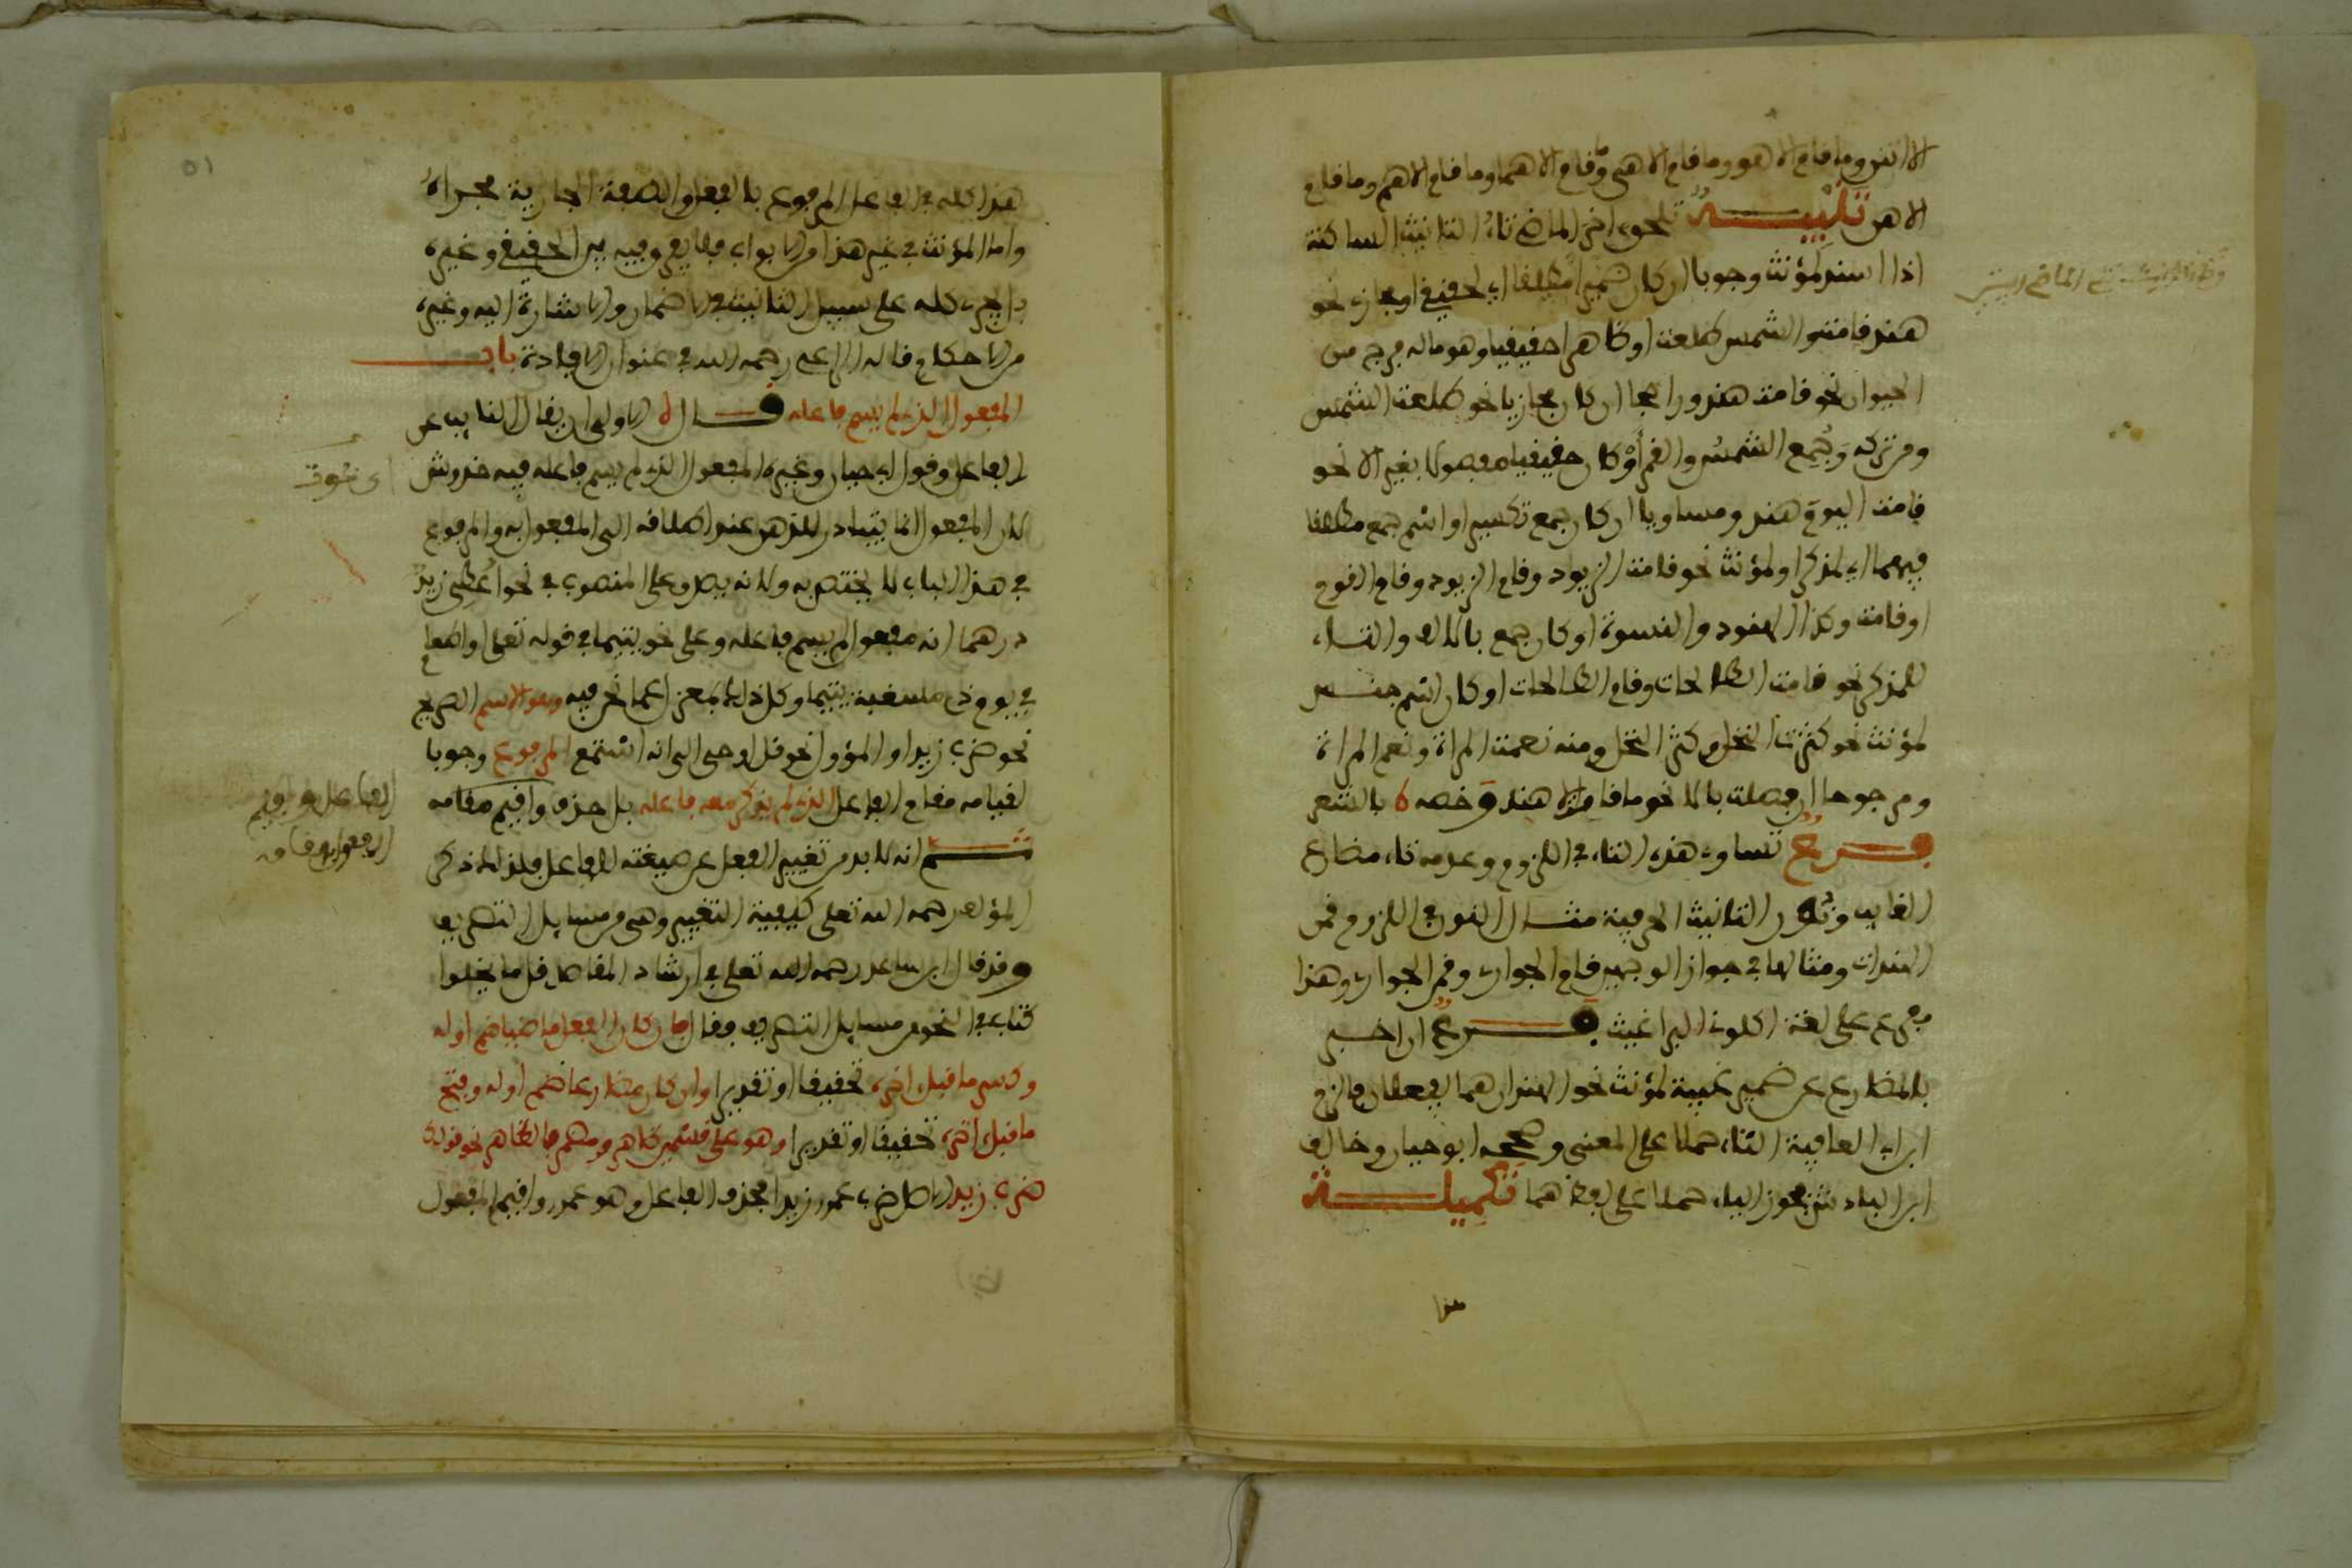 الا انتن وما قام الا هو وما قام الا هى وما قام الا هما وما قام الا هم وما قام
الا هن تنبيه تلحق اخر الماضى تاء التانيث الساكنة
اذا اسند لمؤنث وجوبا ان كان ضميرا مطلقا اى لحقيقى او مجازى نحو
هند قامت والشمس طلعت او ظاهرا حقيقيا وهو ما له فرج من
الحيوان نحو قامت هند وراجحا ان كان مجازيا نحو طلعت الشمس
ومن تركه وجمع الشمس والقمر او كان حقيقيا مفصولا بغير الا نحو
قامت اليوم هند ومساويا ان كان جمع تكسير او اسم جمع مطلقا
فيهما اى لمذكر او لمؤنث نحو قامت الزيود وقام الزيود وقام القوم
او قامت وكذا الهنود والنسوة او كان جمع بالالف والتاء
لمذكر نحو قامت الطلحات وقام الطلحات او كان اسم جنس
لمؤنث نحو كثرت النخل وكثر النخل ومنه نعمت المراة ونعم المراة
ومرجوحا ان فصلت بالا نحو ما قامت الا هند وخصه بالشعر
فرع تساوى هذه التاء فى اللزوم وعدمه تاء مضارع
الغايب ونون التانيث الحرفية مثال النون فى اللزوم قمن
الهندات ومثالها فى جواز الوجهين قام الجوارى وقمن الجوارى وهذا
مفرع على لغة اكلونى البراغيث فرع ان اخبر
بالمضارع عن ضمير غيبة لمؤنث نحو الهندان هما يفعلان فالزم
ابن ابى العافية التاء حملا على المعنى وصححه ابو حيان وخالف
ابن الباذش فجوز الياء حملا على لفظ هما تكميلة
هذا
هذا كله فى الفاعل المرفوع بالفعل والصفة الجارية مجراه
واما المؤنث فى غير هذا من الابواب فلا يفرق فيه بين الحقيقى وغيره
بل يجرى كله على سبيل التانيث فى الاضمار والاشارة اليه وغيره
من الاحكام قاله الراعى رحمه الله فى عنوان الافادة باب
المفعول الذى لم يسم فاعله قال الاولى ان يقال النايب عن
الفاعل وقول ابى حيان وغيره المفعول الذى لم يسم فاعله فيه خدوش
لان المفعول انما يتبادر للذهن عند اطلاقه الى المفعول به والمرفوع
فى هذا الباب لا يختص به ولانه يصدق على المنصوب فى نحو اعطى زيد
درهما انه مفعول لم يسم فاعله وعلى نحو يتيما فى قوله تعلى او اطعام
فى يوم ذى مسغبة يتيما وكل ذلك بمعزل عما نحن فيه وهو الاسم الصريح
نحو ضرب زيد او المؤول نحو قل اوحى الى انه استمع المرفوع وجوبا
لقيامه مقام الفاعل الذى لم يذكر معه فاعله بل حذف واقيم مقامه
ثم انه لا بد من تغيير الفعل عن صيغته للفاعل فلذلك ذكر
المؤلف رحمه الله تعلى كيفية التغيير وهى من مسايل التصريف
وقد قال ابن رحمه الله تعلى فى ارشاد المقاصد قل ما يخلوا
كتاب فى النحو من مسايل التصريف وقال فان كان الفعل ماضيا ضم اوله
وكسر ما قبل اخره تحقيقا او تقديرا وان كان مضارعا ضم اوله وفتح
ما قبل اخره تحقيقا او تقديرا وهو على قسمين ظاهر ومضمر فالظاهر نحو قولك
ضرب زيد الاصل ضرب عمرو زيدا فحذف الفاعل وهو عمرو واقيم المفعول
الفاعل واقيم
المفعول مقامه